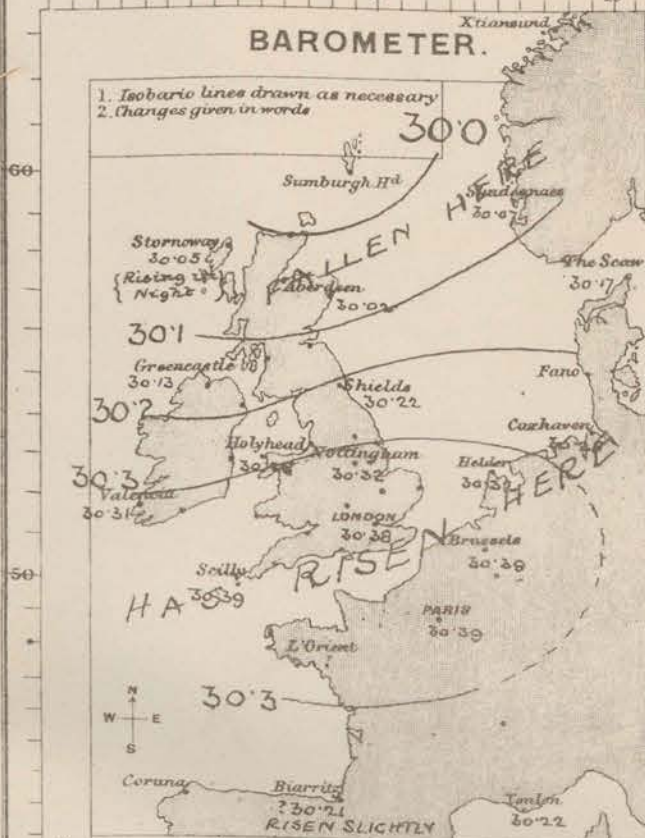 Xtiansund
BAROMETER.
1. Isobaric lines drawn as necessary
2. Changes given in words
30·0
60
Sumburgh Hd
Sundesnaes
30·07
FALLEN HERE
Stornoway
30·05
{Rising if}
{Night}
Aberdeen
30·02
The Scaw
30·17
30·1
Greencastle
30·13
Fano
Shields
30·22
30·2
Holyhead
Nottingham
30·32
Cuxhaven
Helder
30·3
Valencia
30·31
LONDON
30·38
Brussels
30·39
50
Scilly
30·39
HAS RISEN HERE
PARIS
30·39
L'Orient
?
30·3
N
W E
S
Coruna
Biarritz
?30·21
RISEN SLIGHTLY
Toulon
30·22